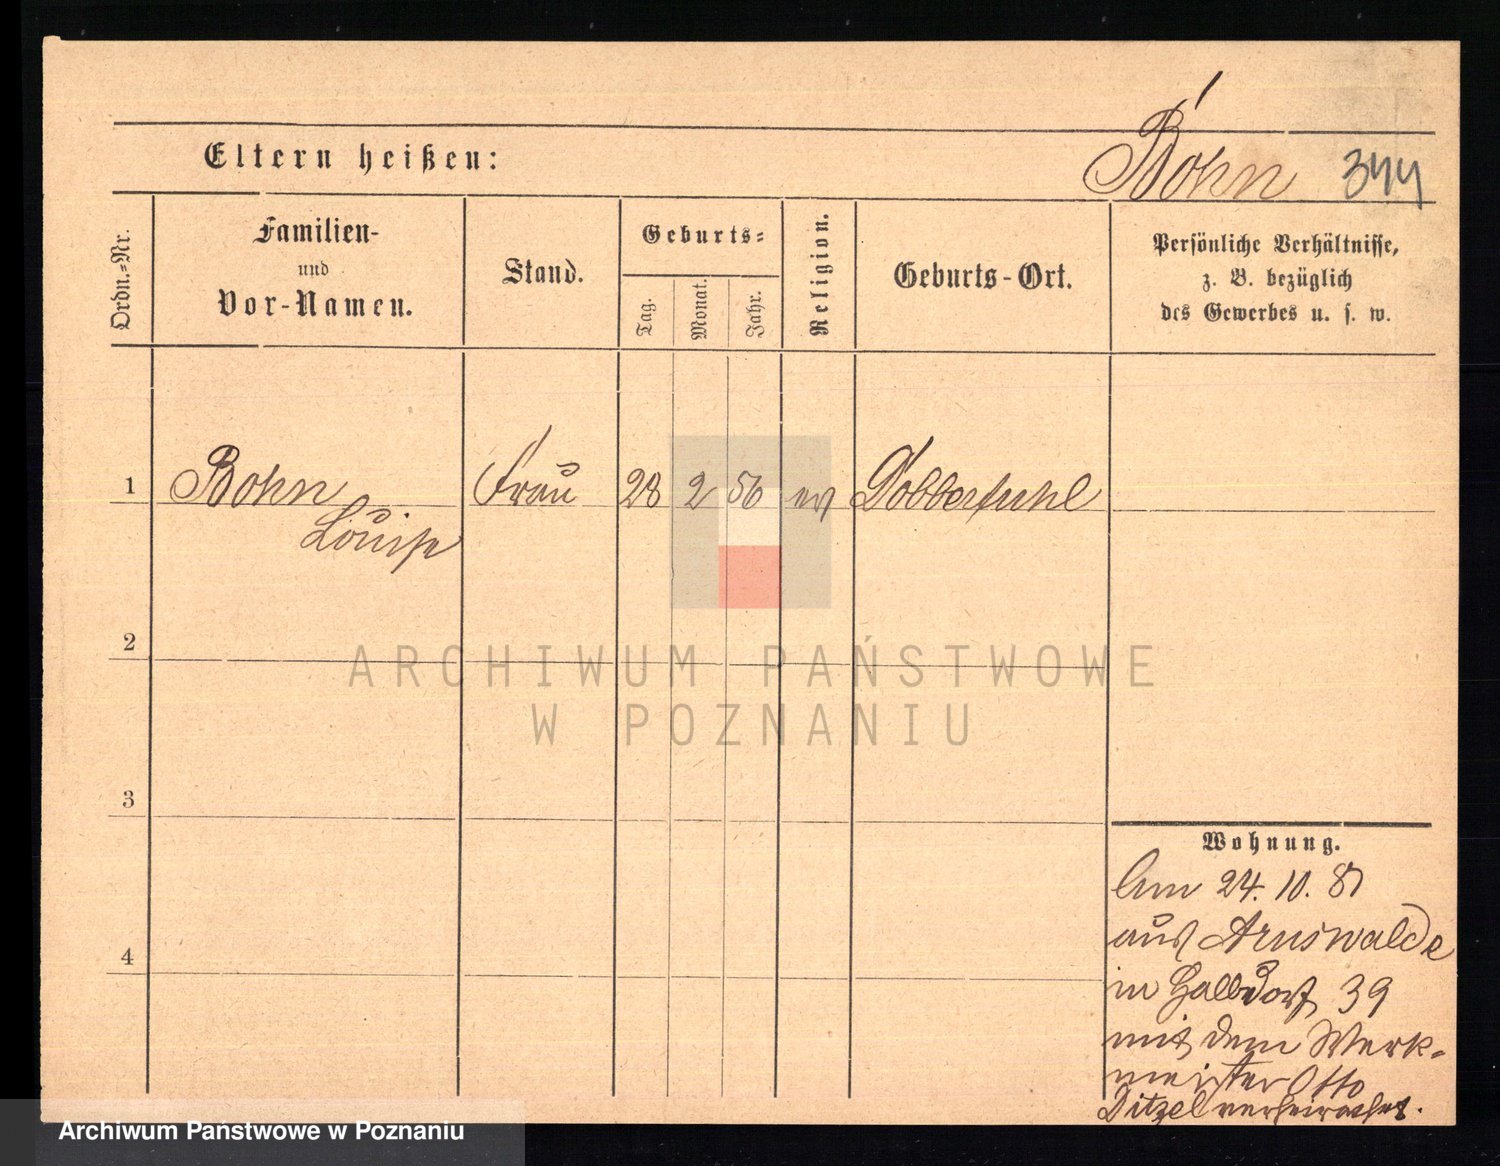 Bohn 344
Eltern heißen:
Ordn.=Nr.
Familien-
und
Vor-Namen.
Stand.
Geburts=
Tag.
Monat.
Jahr.
Religion.
Geburts-Ort.
Persönliche Verhältnisse,
z. B. bezüglich
des Gewerbes u. s. w.
1 Bohn Frau 28 2 56 ev Dobberfuhl
Louise
2
3
4
Wohnung.
Am 24. 10. 81
aus Arnswalde
in Halbdorf 39
mit dem Werk-
meister Otto
Ditzel verheirathet.
ARCHIWUM PAŃSTWOWE
W POZNANIU
Archiwum Państwowe w Poznaniu